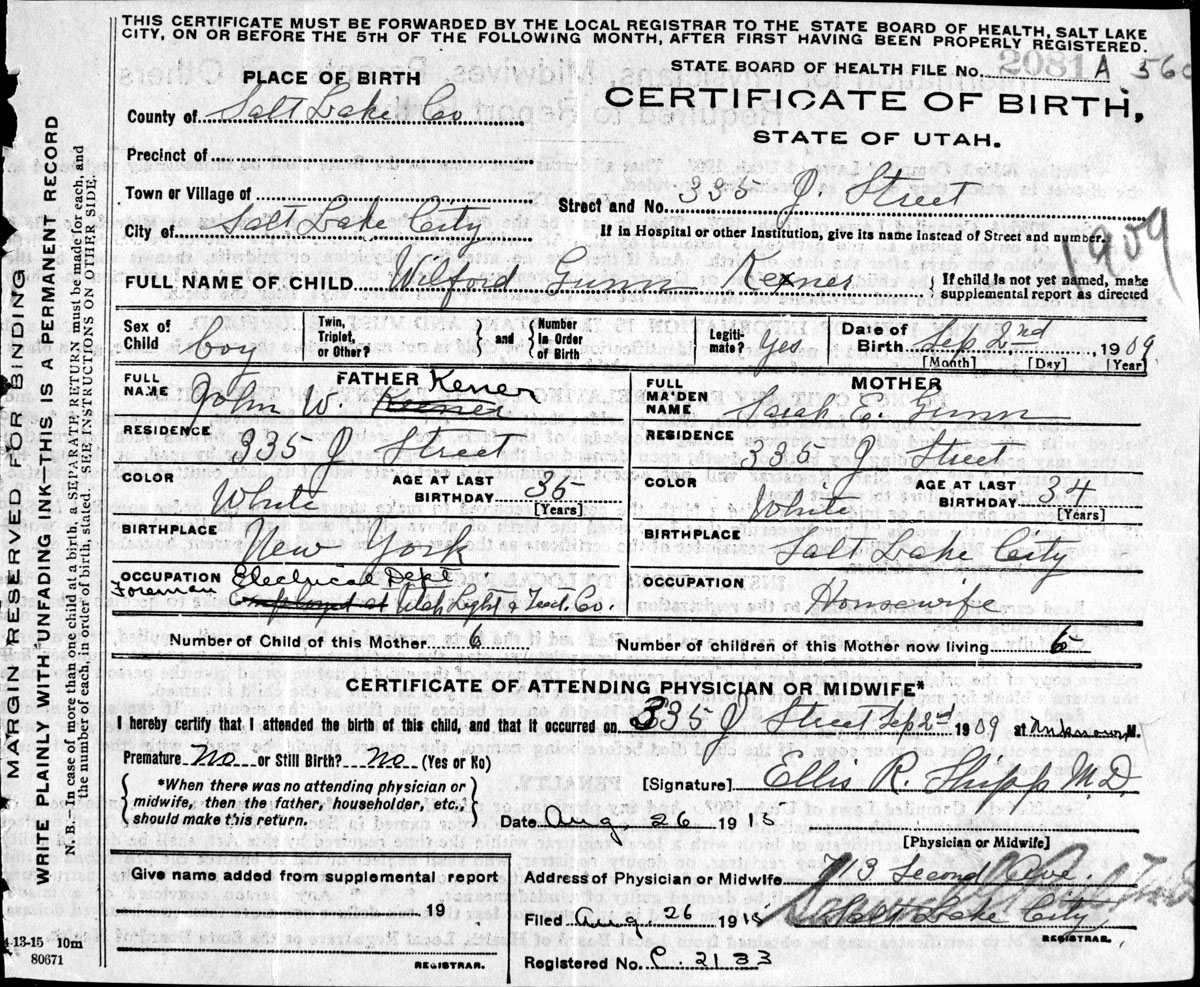 THIS CERTIFICATE MUST BE FORWARDED BY THE LOCAL REGISTRAR TO THE STATE BOARD OF HEALTH, SALT LAKE
CITY, ON OR BEFORE THE 5TH OF THE FOLLOWING MONTH, AFTER FIRST HAVING BEEN PROPERLY REGISTERED.
STATE BOARD OF HEALTH FILE No. 2081 A 560
PLACE OF BIRTH
CERTIFICATE OF BIRTH,
STATE OF UTAH.
County of Salt Lake Co
Precinct of
Town or Village of
Street and No. 335 J. Street
City of Salt Lake City
If in Hospital or other Institution, give its name instead of Street and number.
1909
FULL NAME OF CHILD Wilford Gunn Kener
If child is not yet named, make
supplemental report as directed
Sex of Child boy
Twin, Triplet, or Other? and Number in Order of Birth
Legitimate? Yes
Date of Birth Sep 2nd, 1909
[Month] [Day] [Year]
FATHER
FULL NAME John W. Kener
RESIDENCE 335 J Street
COLOR White
AGE AT LAST BIRTHDAY 36
[Years]
BIRTHPLACE New York
OCCUPATION Foreman Electrical Dept
Employed at Utah Light & Tract. Co.
MOTHER
FULL MAIDEN NAME Sarah E. Gunn
RESIDENCE 335 J Street
COLOR White
AGE AT LAST BIRTHDAY 34
[Years]
BIRTHPLACE Salt Lake City
OCCUPATION Housewife
Number of Child of this Mother 6
Number of children of this Mother now living 6
CERTIFICATE OF ATTENDING PHYSICIAN OR MIDWIFE*
I hereby certify that I attended the birth of this child, and that it occurred on 335 J Street Sep 2nd 1909 at Unknown M.
Premature? No or Still Birth? No (Yes or No)
*When there was no attending physician or
midwife, then the father, householder, etc.,
should make this return.
[Signature] Ellis R. Shipp M.D.
Date Aug. 26 1915
[Physician or Midwife]
Give name added from supplemental report
19
REGISTRAR.
Address of Physician or Midwife 713 Second Ave.
Salt Lake City
Filed Aug 26 1915
REGISTRAR.
Registered No. C. 2133
4-13-15 10m
80671
MARGIN RESERVED FOR BINDING
WRITE PLAINLY WITH UNFADING INK—THIS IS A PERMANENT RECORD
N. B.—In case of more than one child at a birth, a SEPARATE RETURN must be made for each, and
the number of each, in order of birth, stated. SEE INSTRUCTIONS ON OTHER SIDE.